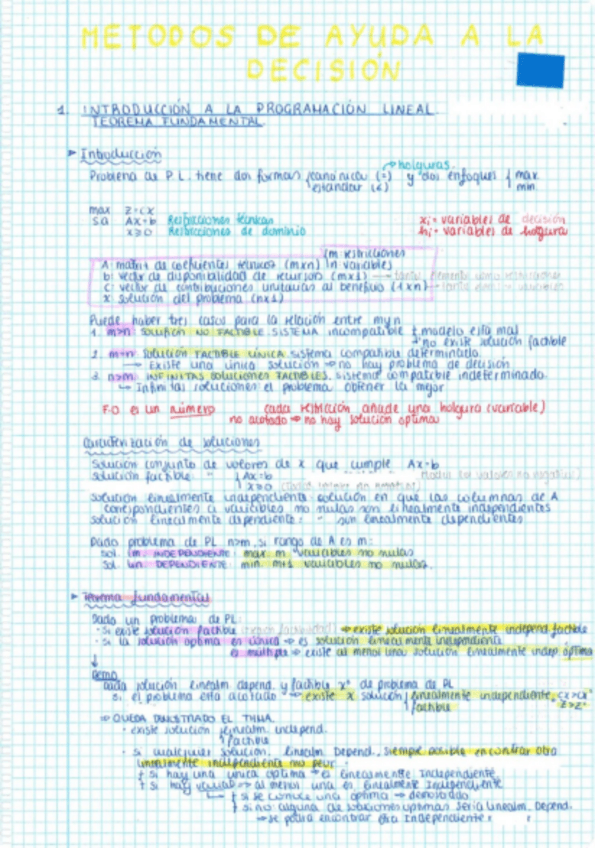 METODOS DE AYUDA A LA
DECISIÓN
1. INTRODUCCIÓN A LA PROGRAMACIÓN LINEAL.
TEOREMA FUNDAMENTAL
► Introducción
→ holguras.
Problema de P.L. tiene dos formas canónica (=) y dos enfoques max
estandar (≤) min
max z=cx
sa Ax=b Restricciones técnicas xi = variables de decisión
x≥0 Restricciones de dominio hi = variables de holgura
m restricciones
A: matriz de coeficientes técnicos (mxn) n variables
b: vector de disponibilidad de recursos (mx1) → tantos elementos como restricciones
c: vector de contribuciones unitarias al beneficio (1xn) → tantos variables
x: solución del problema (nx1)
Puede haber tres casos para la relación entre m y n
1. m>n: solución NO FACTIBLE. SISTEMA incompatible modelo está mal
no existe solución factible
2. m=n: solución FACTIBLE ÚNICA. sistema compatible determinado
→ Existe una única solución ⇒ no hay problema de decisión
3. n>m: INFINITAS SOLUCIONES FACTIBLES. sistema compatible indeterminado.
↳ Infinitas soluciones: el problema obtener la mejor
F.O es un número cada restricción añade una holgura (variable)
no acotado ⇒ no hay solución optima
Caracterización de soluciones
Solución conjunto de valores de x que cumple Ax=b
solución factible: " Ax=b
x≥0
Solución linealmente independiente: solución en que las columnas de A
correspondientes a variables no nulas son linealmente independientes
solución linealmente dependiente: " son linealmente dependientes
Dado problema de PL n>m, si rango de A es m:
sol. lm. INDEPENDIENTE: max m variables no nulas
sol. lin DEPENDIENTE: min m+1 variables no nulas.
► Teorema fundamental
Dado un problemas de PL:
· si existe solución factible ⇒ existe solución linealmente independ. factible
· si la solución optima es única ⇒ es solución linealmente independiente
es múltiple ⇒ existe al menos una solución linealmente indep. optima
↓
Demo
cada solución linealm. depend. y factible x° de problema de PL
si el problema esta acotado ⇒ existe x solución linealmente independiente cx>cx°
factible z>z°
⇒ QUEDA DEMOSTRADO EL TEMA.
· existe solución linealm. independ.
factible
· si cualquier solución. linealm Depend, siempre posible encontrar otra
linealmente independiente no peor.
si hay una única optima ⇒ es linealmente Independiente
si hay ⇒ al menos una es linealmente Independiente
↳ si se conoce una optima ⇒ demostrado
si no alguna de soluciones optimas seria linealm. Depend.
⇒ se podrá encontrar otra Independiente